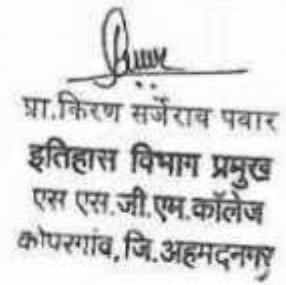 प्रा.किरण सर्जेराव पवार
इतिहास विभाग प्रमुख
एस एस.जी.एम.कॉलेज
कोपरगांव, जि.अहमदनगर